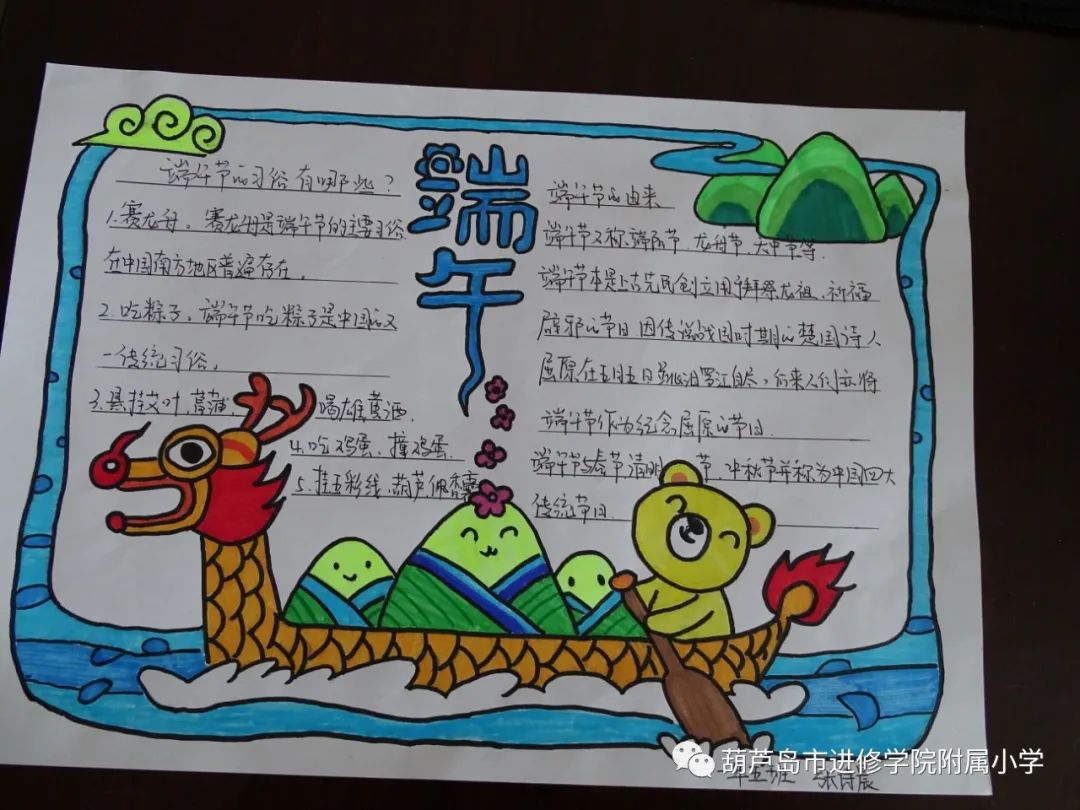 端午
端午节的习俗有哪些？
1.赛龙舟。赛龙舟是端午节的主要习俗.
在中国南方地区普遍存在。
2.吃粽子。端午节吃粽子是中国的又
一传统习俗。
3.悬挂艾叶，菖蒲，喝雄黄酒.
4.吃鸡蛋、撞鸡蛋.
5.挂五彩线、葫芦、佩香囊
端午节的由来
端午节又称端阳节、龙舟节、大中节等.
端午节本是上古先民创立用于拜祭龙祖、祈福
辟邪的节日.因传说战国时期的楚国诗人
屈原在五月五日跳汨罗江自尽，后来人们亦将
端午节作为纪念屈原的节日.
端午节与春节、清明节、中秋节并称为中国四大
传统节日.
五班
葫芦岛市进修学院附属小学